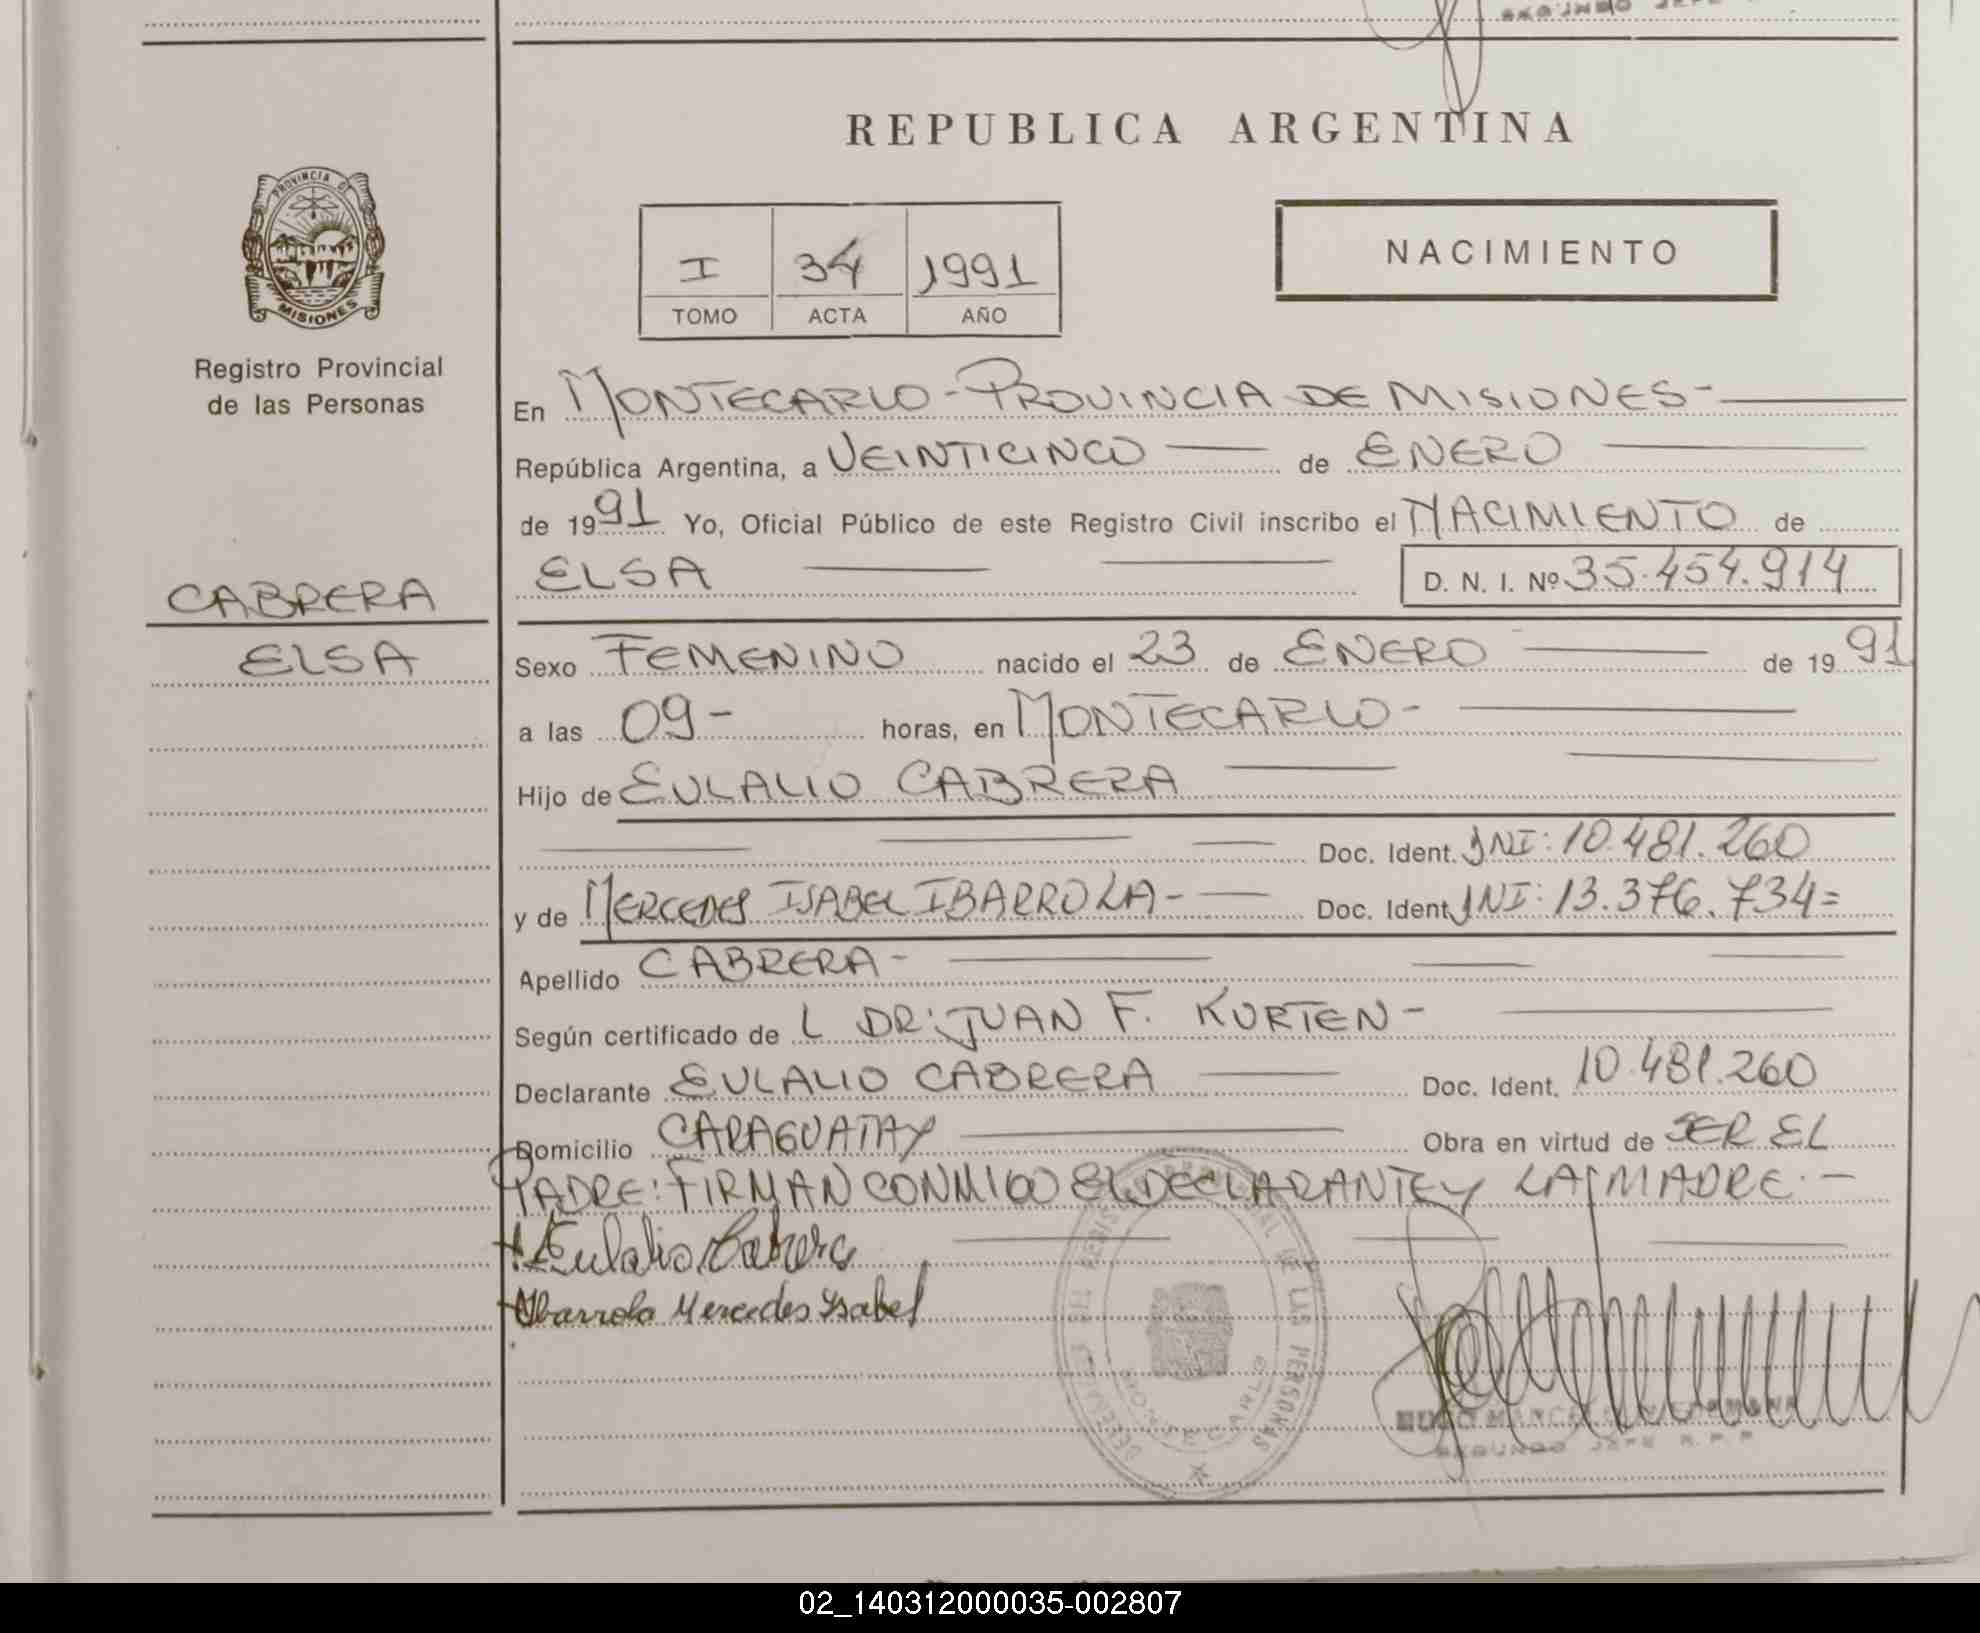 REPUBLICA ARGENTINA
PROVINCIA DE
MISIONES
Registro Provincial
de las Personas
I 34 1991
TOMO ACTA AÑO
NACIMIENTO
En MONTECARLO - PROVINCIA DE MISIONES -
República Argentina, a VEINTICINCO de ENERO
de 1991 Yo, Oficial Público de este Registro Civil inscribo el NACIMIENTO de
ELSA D. N. I. Nº 35.454.914
CABRERA
ELSA
Sexo FEMENINO nacido el 23 de ENERO de 1991
a las 09 - horas, en MONTECARLO -
Hijo de EULALIO CABRERA
Doc. Ident. DNI: 10.481.260
y de MERCEDES ISABEL IBARROLA - Doc. Ident. DNI: 13.376.734=
Apellido CABRERA -
Según certificado de L DR: JUAN F. KURTEN -
Declarante EULALIO CABRERA Doc. Ident. 10.481.260
Domicilio CARAGUATAY Obra en virtud de SER EL
PADRE: FIRMAN CONMIGO EL DECLARANTE Y LA MADRE. -
Eulalio Cabrera
Ibarrola Mercedes Isabel
DE LAS PERSONAS
MONTECARLO
HUGO
SEGUNDO JEFE R. P. P.
02_140312000035-002807